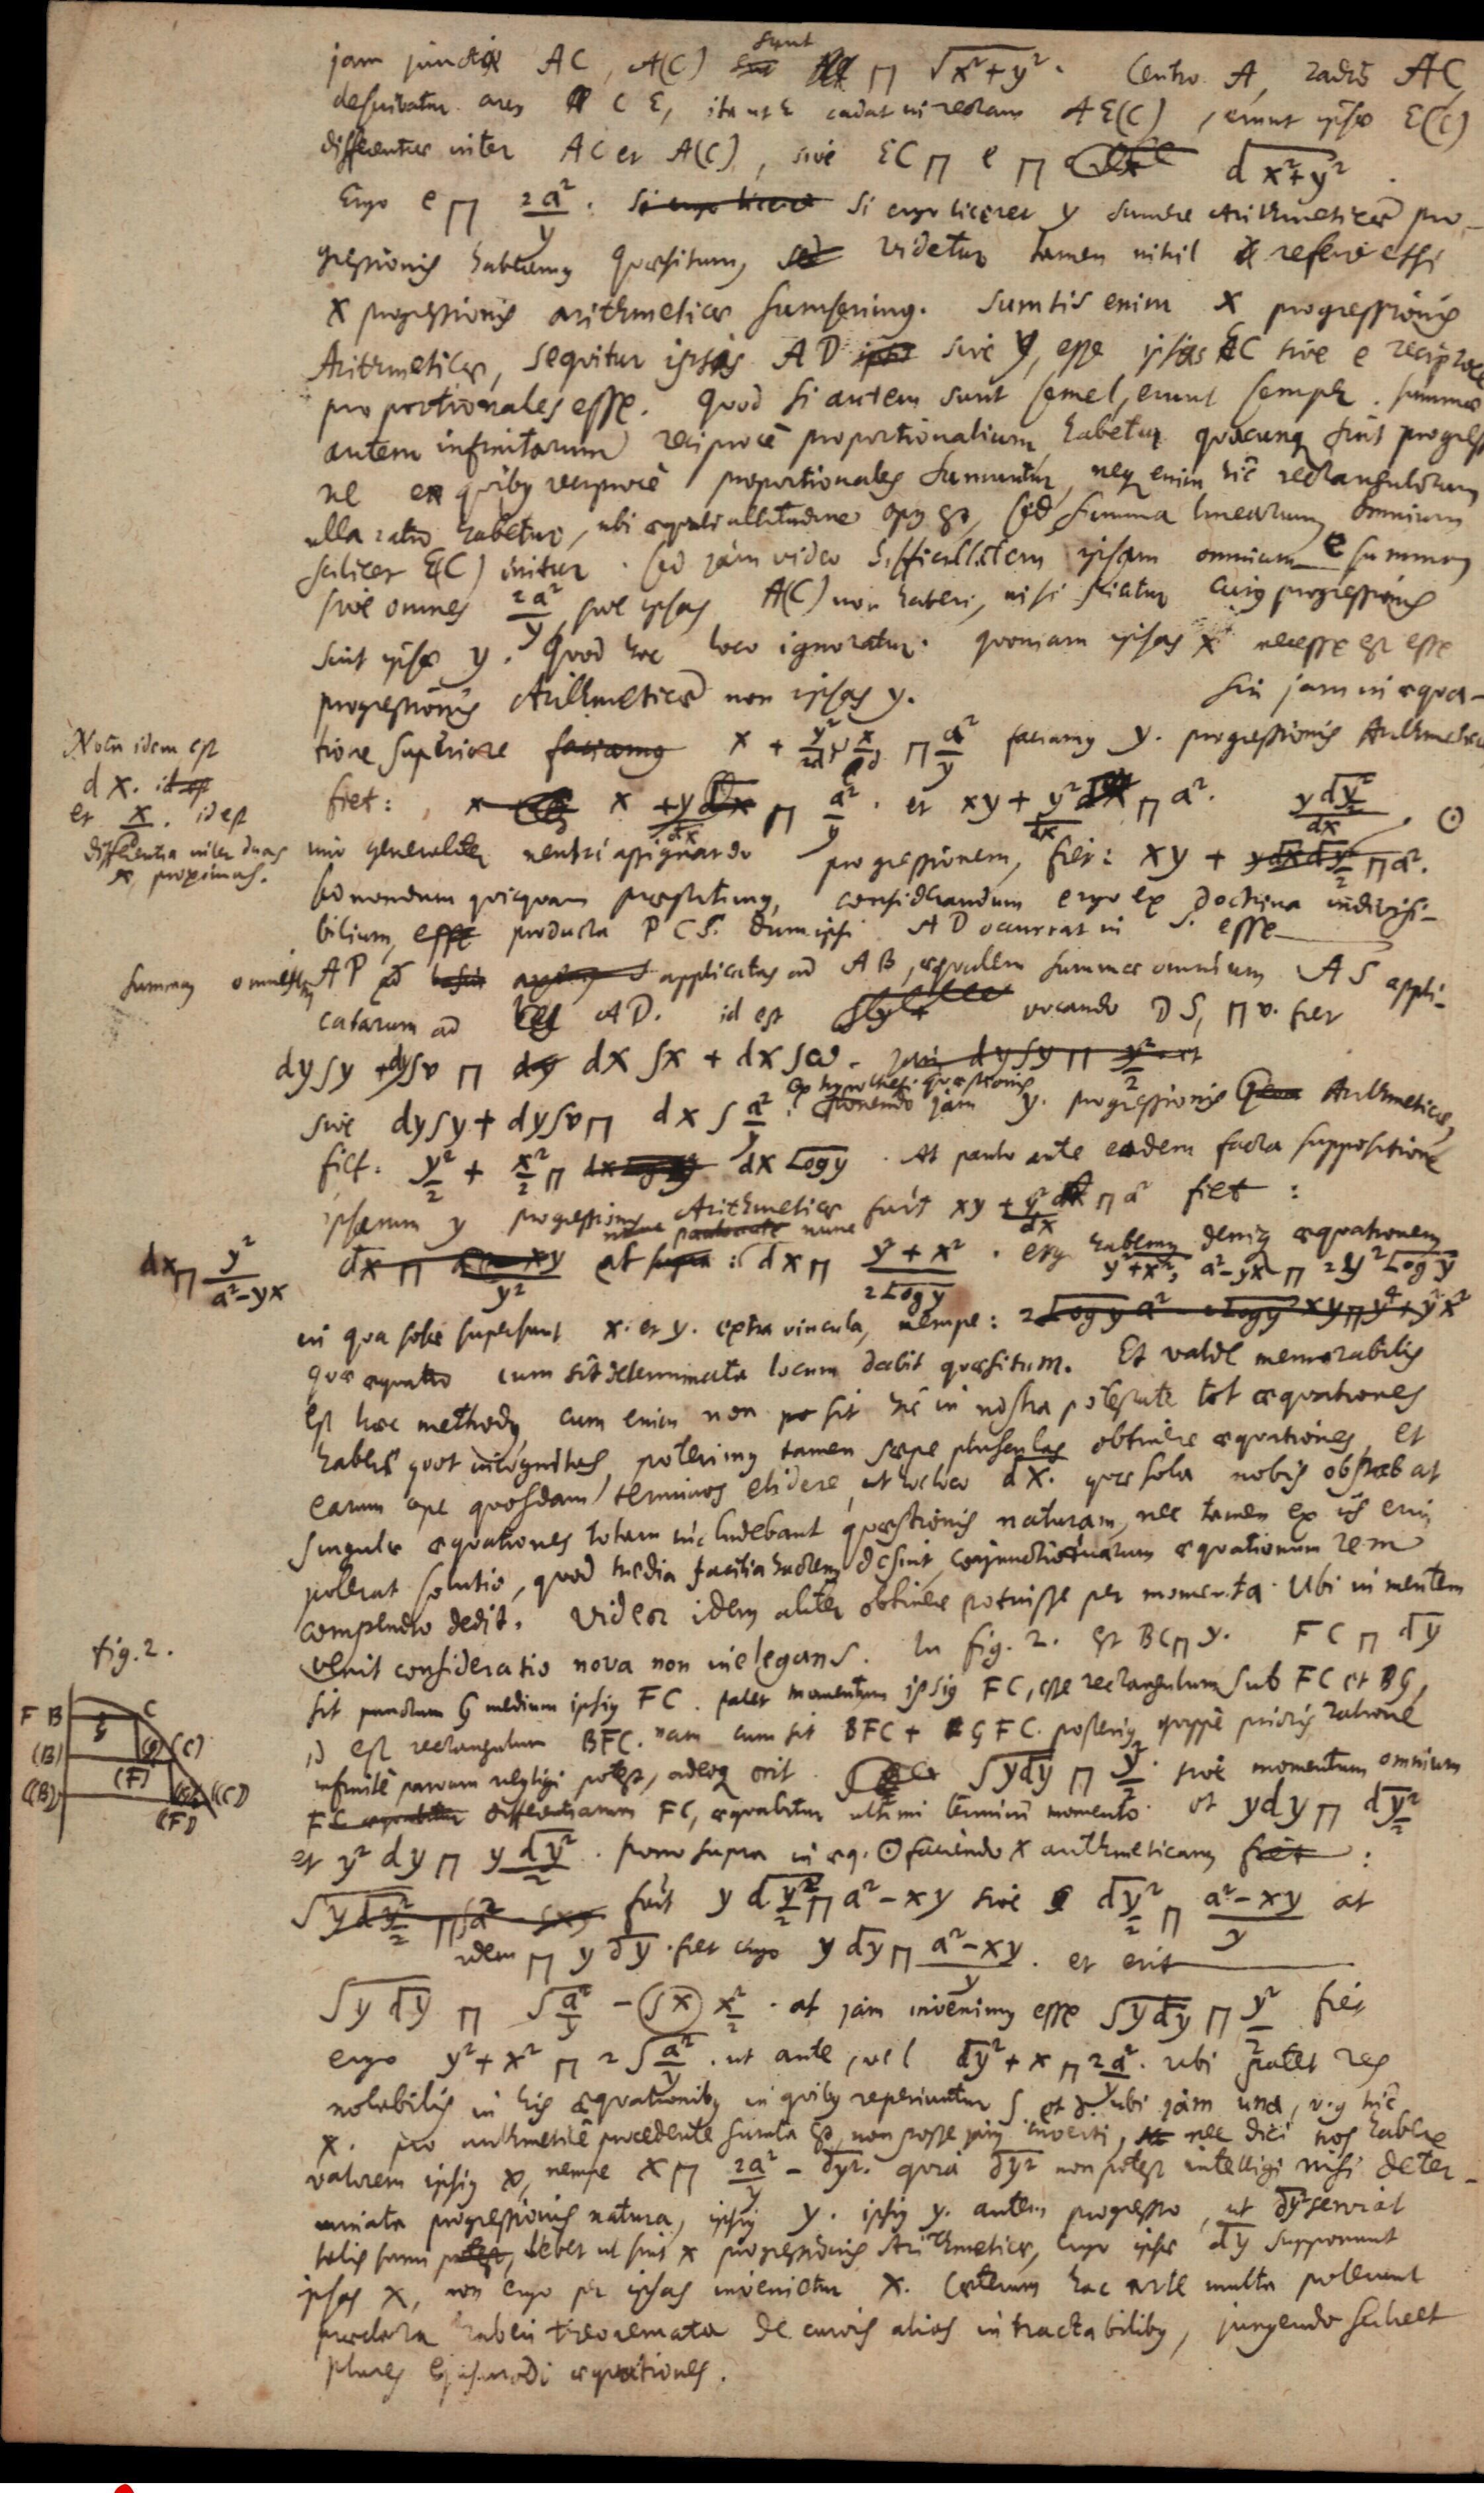 jam junctis AC, A(C) sunt ⊓ √x²+y². Centro A, radio AC
describatur arcus CE, ita ut E cadat in rectam AE(C), erunt ipsae E(C)
differentiae inter AC et A(C), sive EC ⊓ e ⊓ d x²+y².
Ergo e ⊓ 2a²/y. Si ergo liceret y sumere Arithmeticae pro-
gressionis haberemus quaesitum, videtur tamen nihil referre etsi
x progressionis arithmeticae sumserimus. Sumtis enim x progressionis
Arithmeticae, sequitur ipsis AD sive y, esse ipsas EC sive e reciproce
proportionales esse. Quod si autem sunt semel, erunt semper. summa
autem infinitarum reciproce proportionalium habetur quacunq sint progressio
ne ex quibus reciproce proportionales sumuntur, neq enim hic rectangulorum
ulla ratio habetur, ubi aequali altitudine opus est, sed summa linearum omnium
scilicet E(C) initur. Sed jam video difficultatem ipsam omnium e summam
sive omnes 2a²/y, sive ipsas A(C) non haberi, nisi sciatur cujus progressionis
sint ipsae y. Quod hoc loco ignoratur. quoniam ipsas x necesse est esse
progressionis Arithmeticae non ipsas y. Sin jam in aequa-
tione superiore x + ⊓ a²/y faciamus y. progressionis Arithmeticae
Nota idem est
dx. id est
et x/d. id est
differentia inter duas
x, proximas.
fiet: x + y/dx ⊓ a²/y. et xy + y²/dx ⊓ a². y dy²/2 / dx ⊙
imo generaliter neutri assignando progressionem, fiet: xy + ⊓ a².
sed nondum quicquam praestitimus, considerandum ergo ex doctrina indivisi-
bilium, producta PCS. dum ipsi AD occurrat in S. esse
summam omnium AP applicatas ad AB, aequalem summae omnium AS appli-
catarum ad AD. id est vocando DS, ⊓ v. fiet
dy∫y + dy∫v ⊓ dx∫x + dx∫ω. jam dy∫y ⊓ y²/2 et
sive dy∫y + dy∫v ⊓ dx∫a²/y. ex hypothesi quaestionis ponendo jam y. progressionis Arithmeticae,
fiet: y²/2 + x²/2 ⊓ dx Log y. At paulo ante eadem facta suppositione
ipsarum y progressionis Arithmeticae fuit xy + y²/dx ⊓ a² fiet:
dx ⊓ y²/a²-yx
at nunc: dx ⊓ y²+x²/2 Log y. ergo habemus deniq aequationem y²+x², a²-yx ⊓ 2y² Log y
in qua solae supersunt x. et y. extra vincula, nempe: 2 Log y a² - 2 Log y xy ⊓ y⁴ + y²x²
quae aequatio cum sit determinata locum dabit quaesitum. Et valde memorabilis
est haec methodus, cum enim non sit hic in nostra potestate tot aequationes
habere quot incognitas, poterimus tamen saepe plusculas obtinere aequationes, et
earum ope quosdam terminos elidere, ut hoc loco dx. quae sola nobis obstabat
Singulae aequationes totam includebant quaestionis naturam, nec tamen ex iis erui
poterat solutio, quod media facilia hactenus desint, conjunctio duarum aequationum rem
compendio dedit. Videor idem aliter obtinere potuisse per momenta. Ubi in mentem
venit consideratio nova non inelegans. In fig. 2. est BC ⊓ y. FC ⊓ dy
fig. 2.
F B C
G
(B) (G) (C)
(F)
((B)) ((G)) ((C))
((F))
sit punctum G medium ipsius FC. patet momentum ipsius FC, esse rectangulum sub FC et BG,
id est rectangulum BFC. nam cum sit BFC + GFC. posterius quippe prioris ratione
infinite parvum negligi potest, adeoq erit ∫ydy ⊓ y²/2. sive momentum omnium
differentiarum FC, aequabitur ultimi termini momento. et ydy ⊓ dy²/2
et y² dy ⊓ y dy²/2. Porro supra in aeq. ⊙ faciendo x arithmeticam fiet:
fuit y dy²/2 ⊓ a²-xy sive dy²/2 ⊓ a²-xy/y at
idem ⊓ y dy. fiet ergo y dy ⊓ a²-xy/y. et erit
∫y dy ⊓ ∫a²/y - ∫x x²/2. at jam invenimus esse ∫y dy ⊓ y²/2 fiet
ergo y²+x² ⊓ 2∫a²/y. ut ante, vel dy²+x ⊓ 2a²/y. ubi patet res
notabilis in his aequationibus in quibus reperiuntur ∫ et d. ubi jam una, v.g. hic
x. pro arithmetice procedente sumta est, non posse jam inverti, nec dici nos habere
valorem ipsius x, nempe x ⊓ 2a²/y - dy². quia dy² non potest intelligi nisi deter-
minata progressionis natura, ipsius y. ipsius y. autem progressio, ut dy² serviat
talis sumi debet ut sint x progressionis Arithmeticae, ergo ipsae dy supponunt
ipsas x, non ergo per ipsas invenietur x. Caeterum hac arte multa poterunt
praeclara haberi theoremata de curvis alias intractabilibus, jungendo scilicet
plures ejusmodi aequationes.